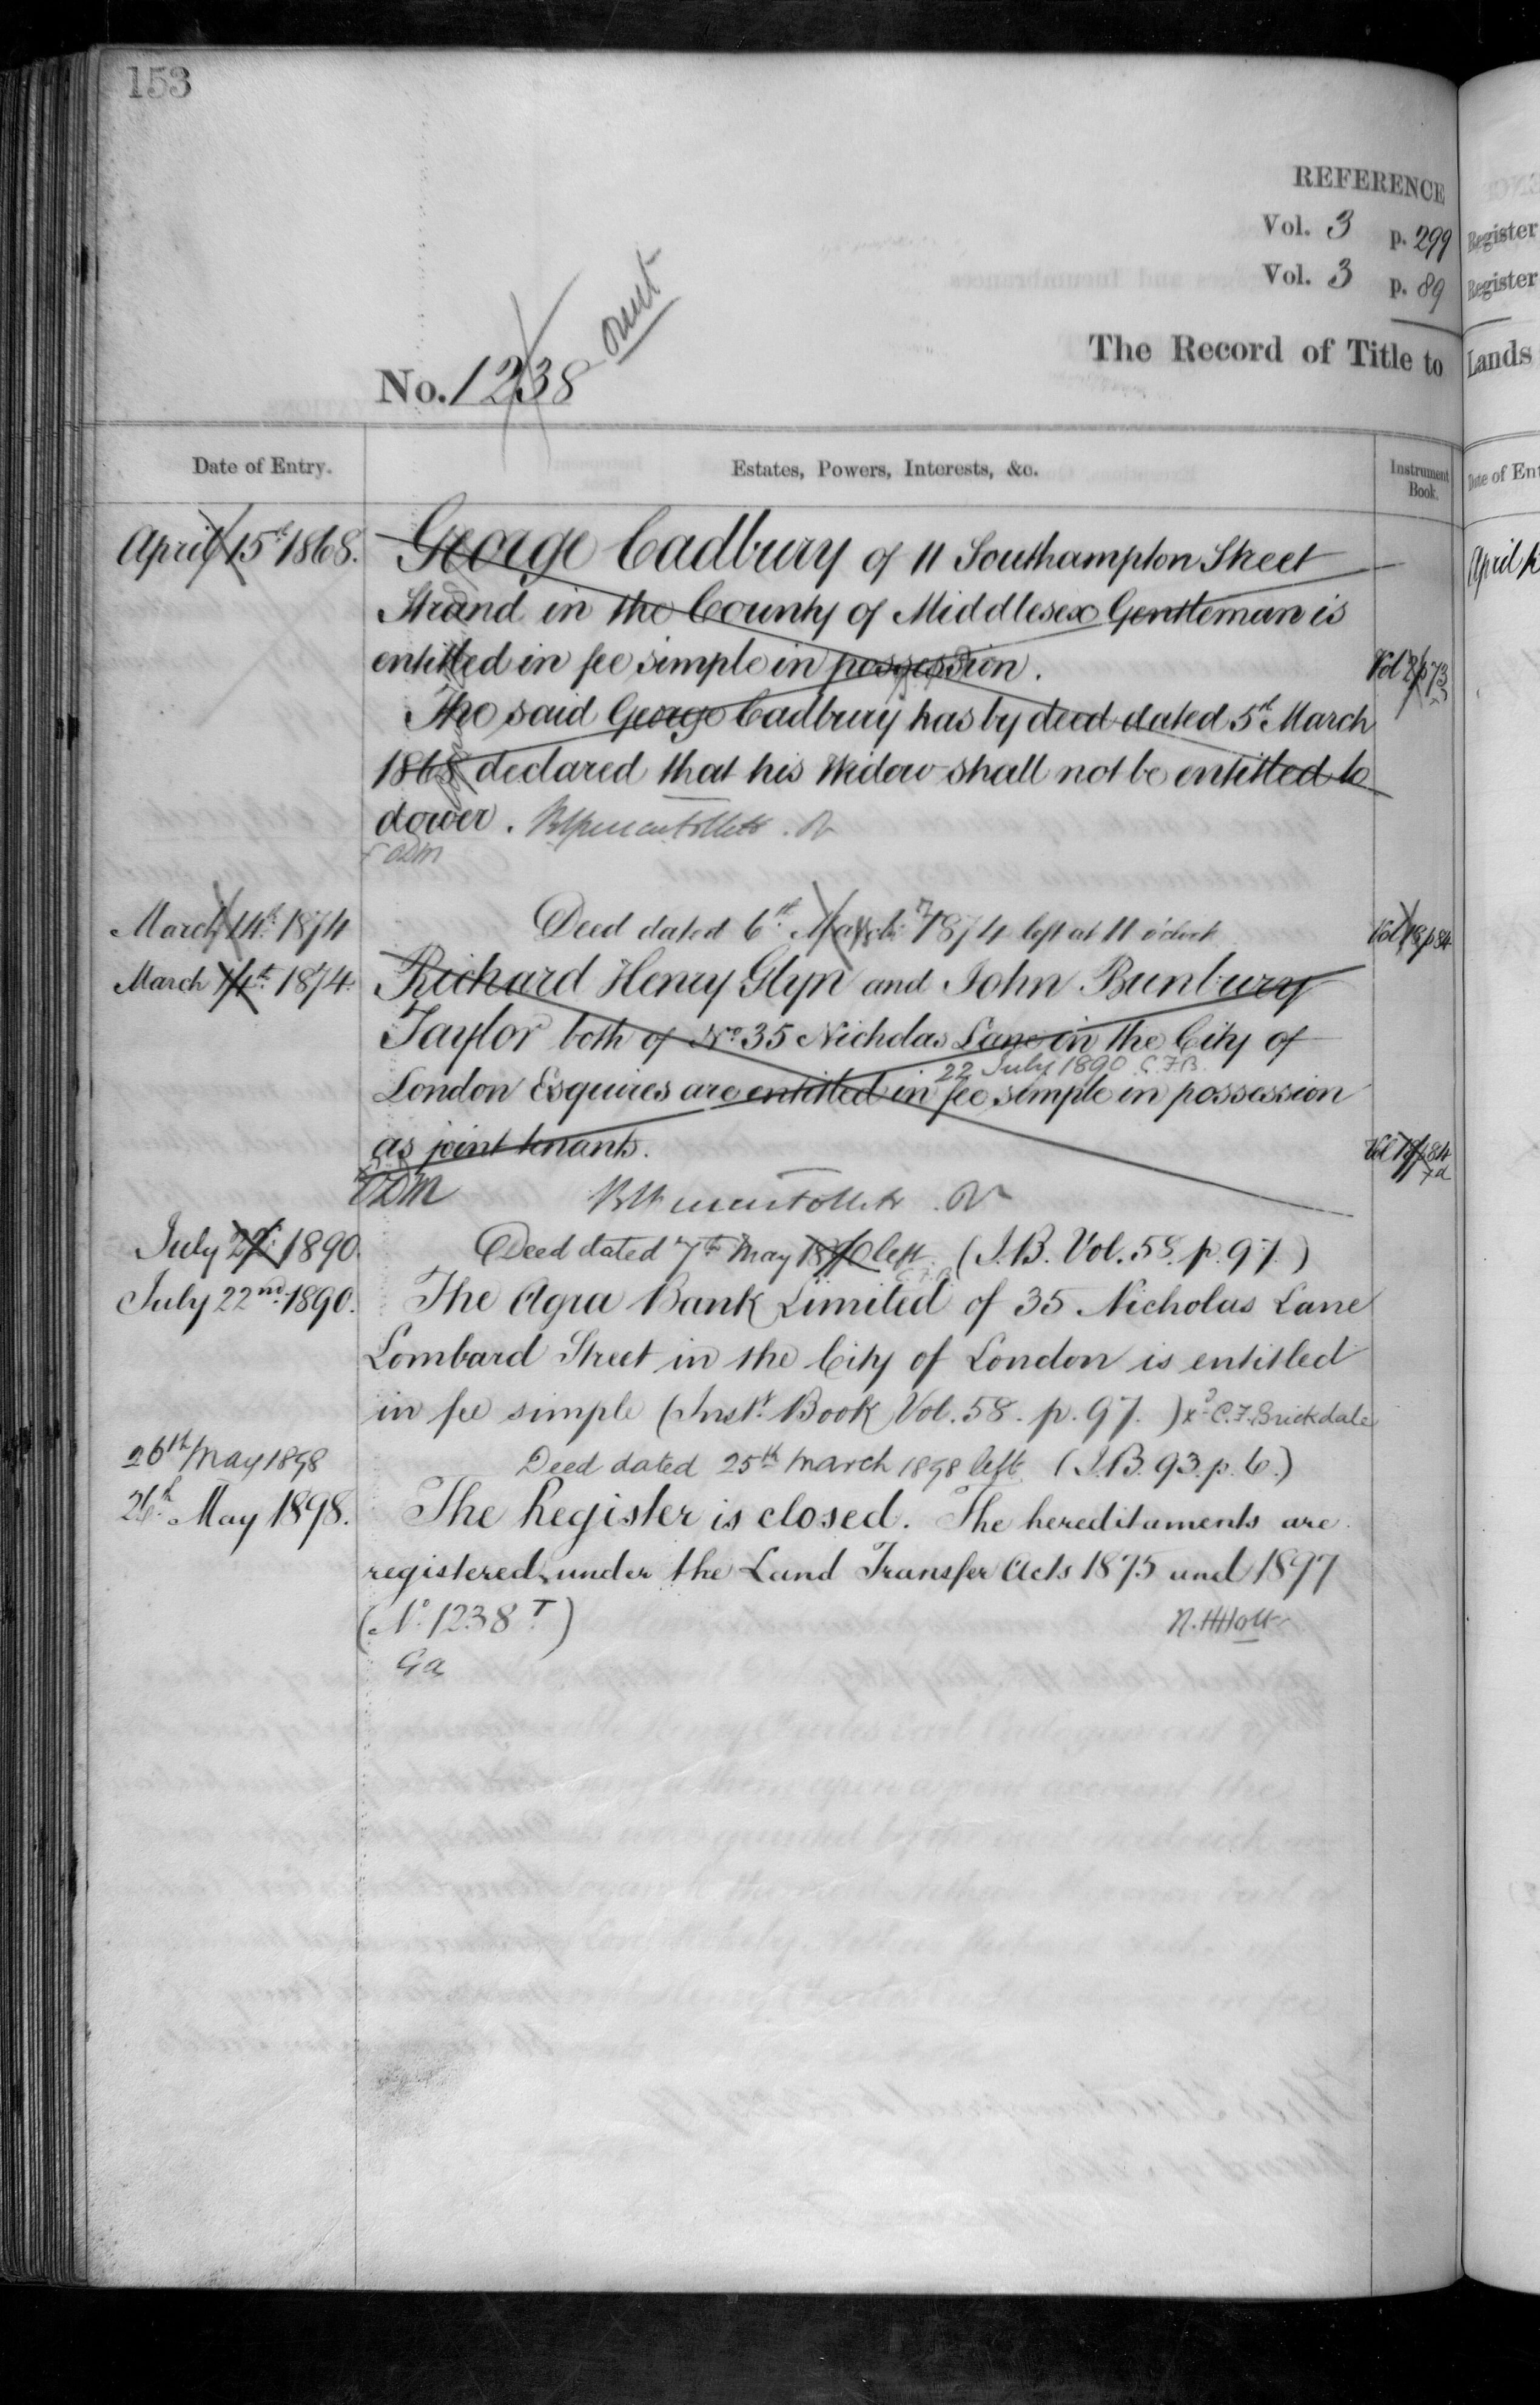 153
REFERENCE
Vol. 3 p. 299 Register
Vol. 3 p. 89 Register
The Record of Title to Lands
No. 1238
Date of Entry. Estates, Powers, Interests, &c. Instrument Book.
April 15th 1868. George Cadbury of 11 Southampton Street
Strand in the County of Middlesex Gentleman is
entitled in fee simple in possession. Vol 2 p 73
The said George Cadbury has by deed dated 5th March
1868 declared that his Widow shall not be entitled to
dower.
March 14th 1874 Deed dated 6th March 1874 left at 11 o'clock Vol 18 p 84
March 14th 1874. Richard Henry Glyn and John Bunbury
Taylor both of No 35 Nicholas Lane in the City of
22 July 1890 C.F.B.
London Esquires are entitled in fee simple in possession
as joint tenants. Vol 18 p 84
July 1890. Deed dated 7th May 1890 left (I.B. Vol. 58. p. 97.)
July 22nd 1890. The Agra Bank Limited of 35 Nicholas Lane
Lombard Street in the City of London is entitled
in fee simple (Inst. Book Vol. 58. p. 97.) C.F. Brickdale
26th May 1898 Deed dated 25th March 1898 left (I.B. 93. p. 6.)
26th May 1898. The Register is closed. The hereditaments are
registered under the Land Transfer Acts 1875 and 1897
(No. 1238 T)